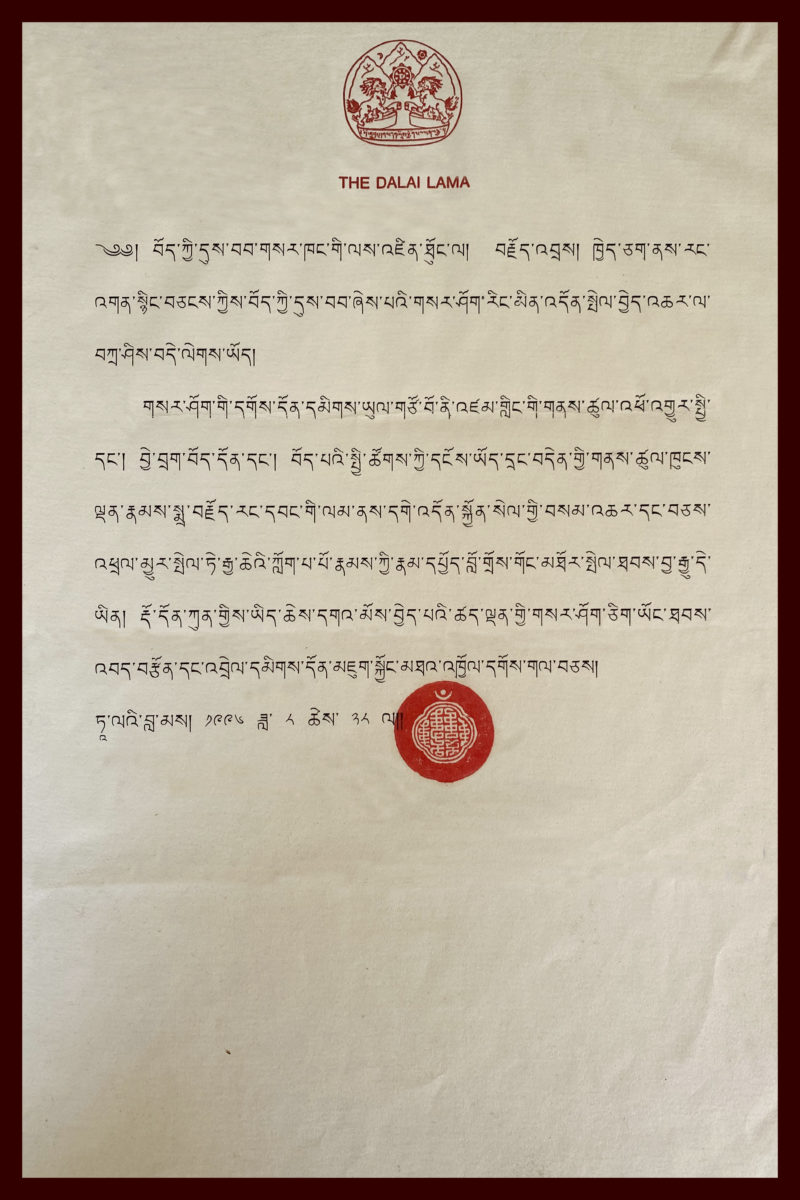 THE DALAI LAMA
༄༅། བོད་ཀྱི་དུས་བབ་གསར་ཁང་གི་ལས་འཛིན་ཐྲོང་ལ། བརྗོད་འབྲས། ཁྱེད་ཅག་ནས་རང་
འགན་སྙིང་བཅངས་ཀྱིས་བོད་ཀྱི་དུས་བབ་ཞེས་པའི་གསར་ཤོག་རིང་མིན་འདོན་སྤེལ་བྱེད་འཆར་ལ་
བཀྲ་ཤིས་བདེ་ལེགས་ཡོད།
གསར་ཤོག་གི་དགོས་དོན་དམིགས་ཡུལ་གཙོ་བོ་ནི་འཛམ་གླིང་གི་གནས་ཚུལ་འཕོ་འགྱུར་སྤྱི་
དང༌། བྱེ་བྲག་བོད་དོན་དང༌། བོད་པའི་སྤྱི་ཚོགས་ཀྱི་དངོས་ཡོད་དྲང་བདེན་གྱི་གནས་ཚུལ་ཁུངས་
ལྡན་རྣམས་སྨྲ་བརྗོད་རང་དབང་གི་ལམ་ནས་དགེ་འདོན་སྐྱོན་སེལ་གྱི་བསམ་འཆར་དང་བཅས་
འཕྲལ་མྱུར་སྤེལ་ཏེ་རྒྱ་ཆེའི་ཀློག་པ་པོ་རྣམས་ཀྱི་རྣམ་དཔྱོད་བློ་གྲོས་གོང་མཐོར་སྤེལ་ཐབས་བྱ་རྒྱུ་དེ་
ཡིན། དོ་དོན་ཀུན་གྱིས་ཡིད་ཆེས་དགའ་མོས་བྱེད་པའི་ཚད་ལྡན་གྱི་གསར་ཤོག་ཅིག་ཡོང་ཐབས་
འབད་བརྩོན་དང་འབྲེལ་དམིགས་དོན་མཇུག་སྐྱོང་མཐའ་འཁྱོལ་དགོས་གལ་བཅས།
ཏཱ་ལའི་བླ་མས། ༡༩༩༦ ཟླ་ ༨ ཚེས་ ༢༨ ལ།།